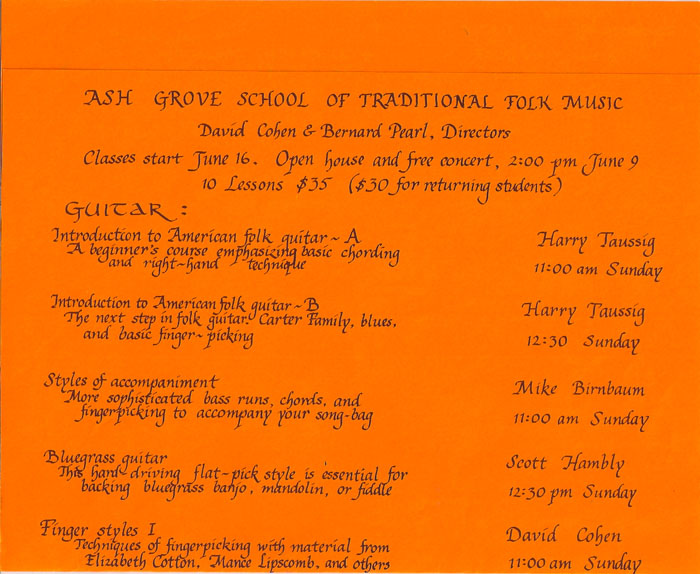 ASH GROVE SCHOOL OF TRADITIONAL FOLK MUSIC
David Cohen & Bernard Pearl, Directors
Classes start June 16. Open house and free concert, 2:00 pm June 9
10 Lessons $35 ($30 for returning students)
GUITAR:
Introduction to American folk guitar ~ A
A beginner's course emphasizing basic chording
and right-hand technique
Harry Taussig
11:00 am Sunday
Introduction to American folk guitar ~ B
The next step in folk guitar. Carter Family, blues,
and basic finger-picking
Harry Taussig
12:30 Sunday
Styles of accompaniment
More sophisticated bass runs, chords, and
fingerpicking to accompany your song-bag
Mike Birnbaum
11:00 am Sunday
Bluegrass guitar
This hard-driving flat-pick style is essential for
backing bluegrass banjo, mandolin, or fiddle
Scott Hambly
12:30 pm Sunday
Finger styles I
Techniques of fingerpicking with material from
Elizabeth Cotton, Mance Lipscomb, and others
David Cohen
11:00 am Sunday